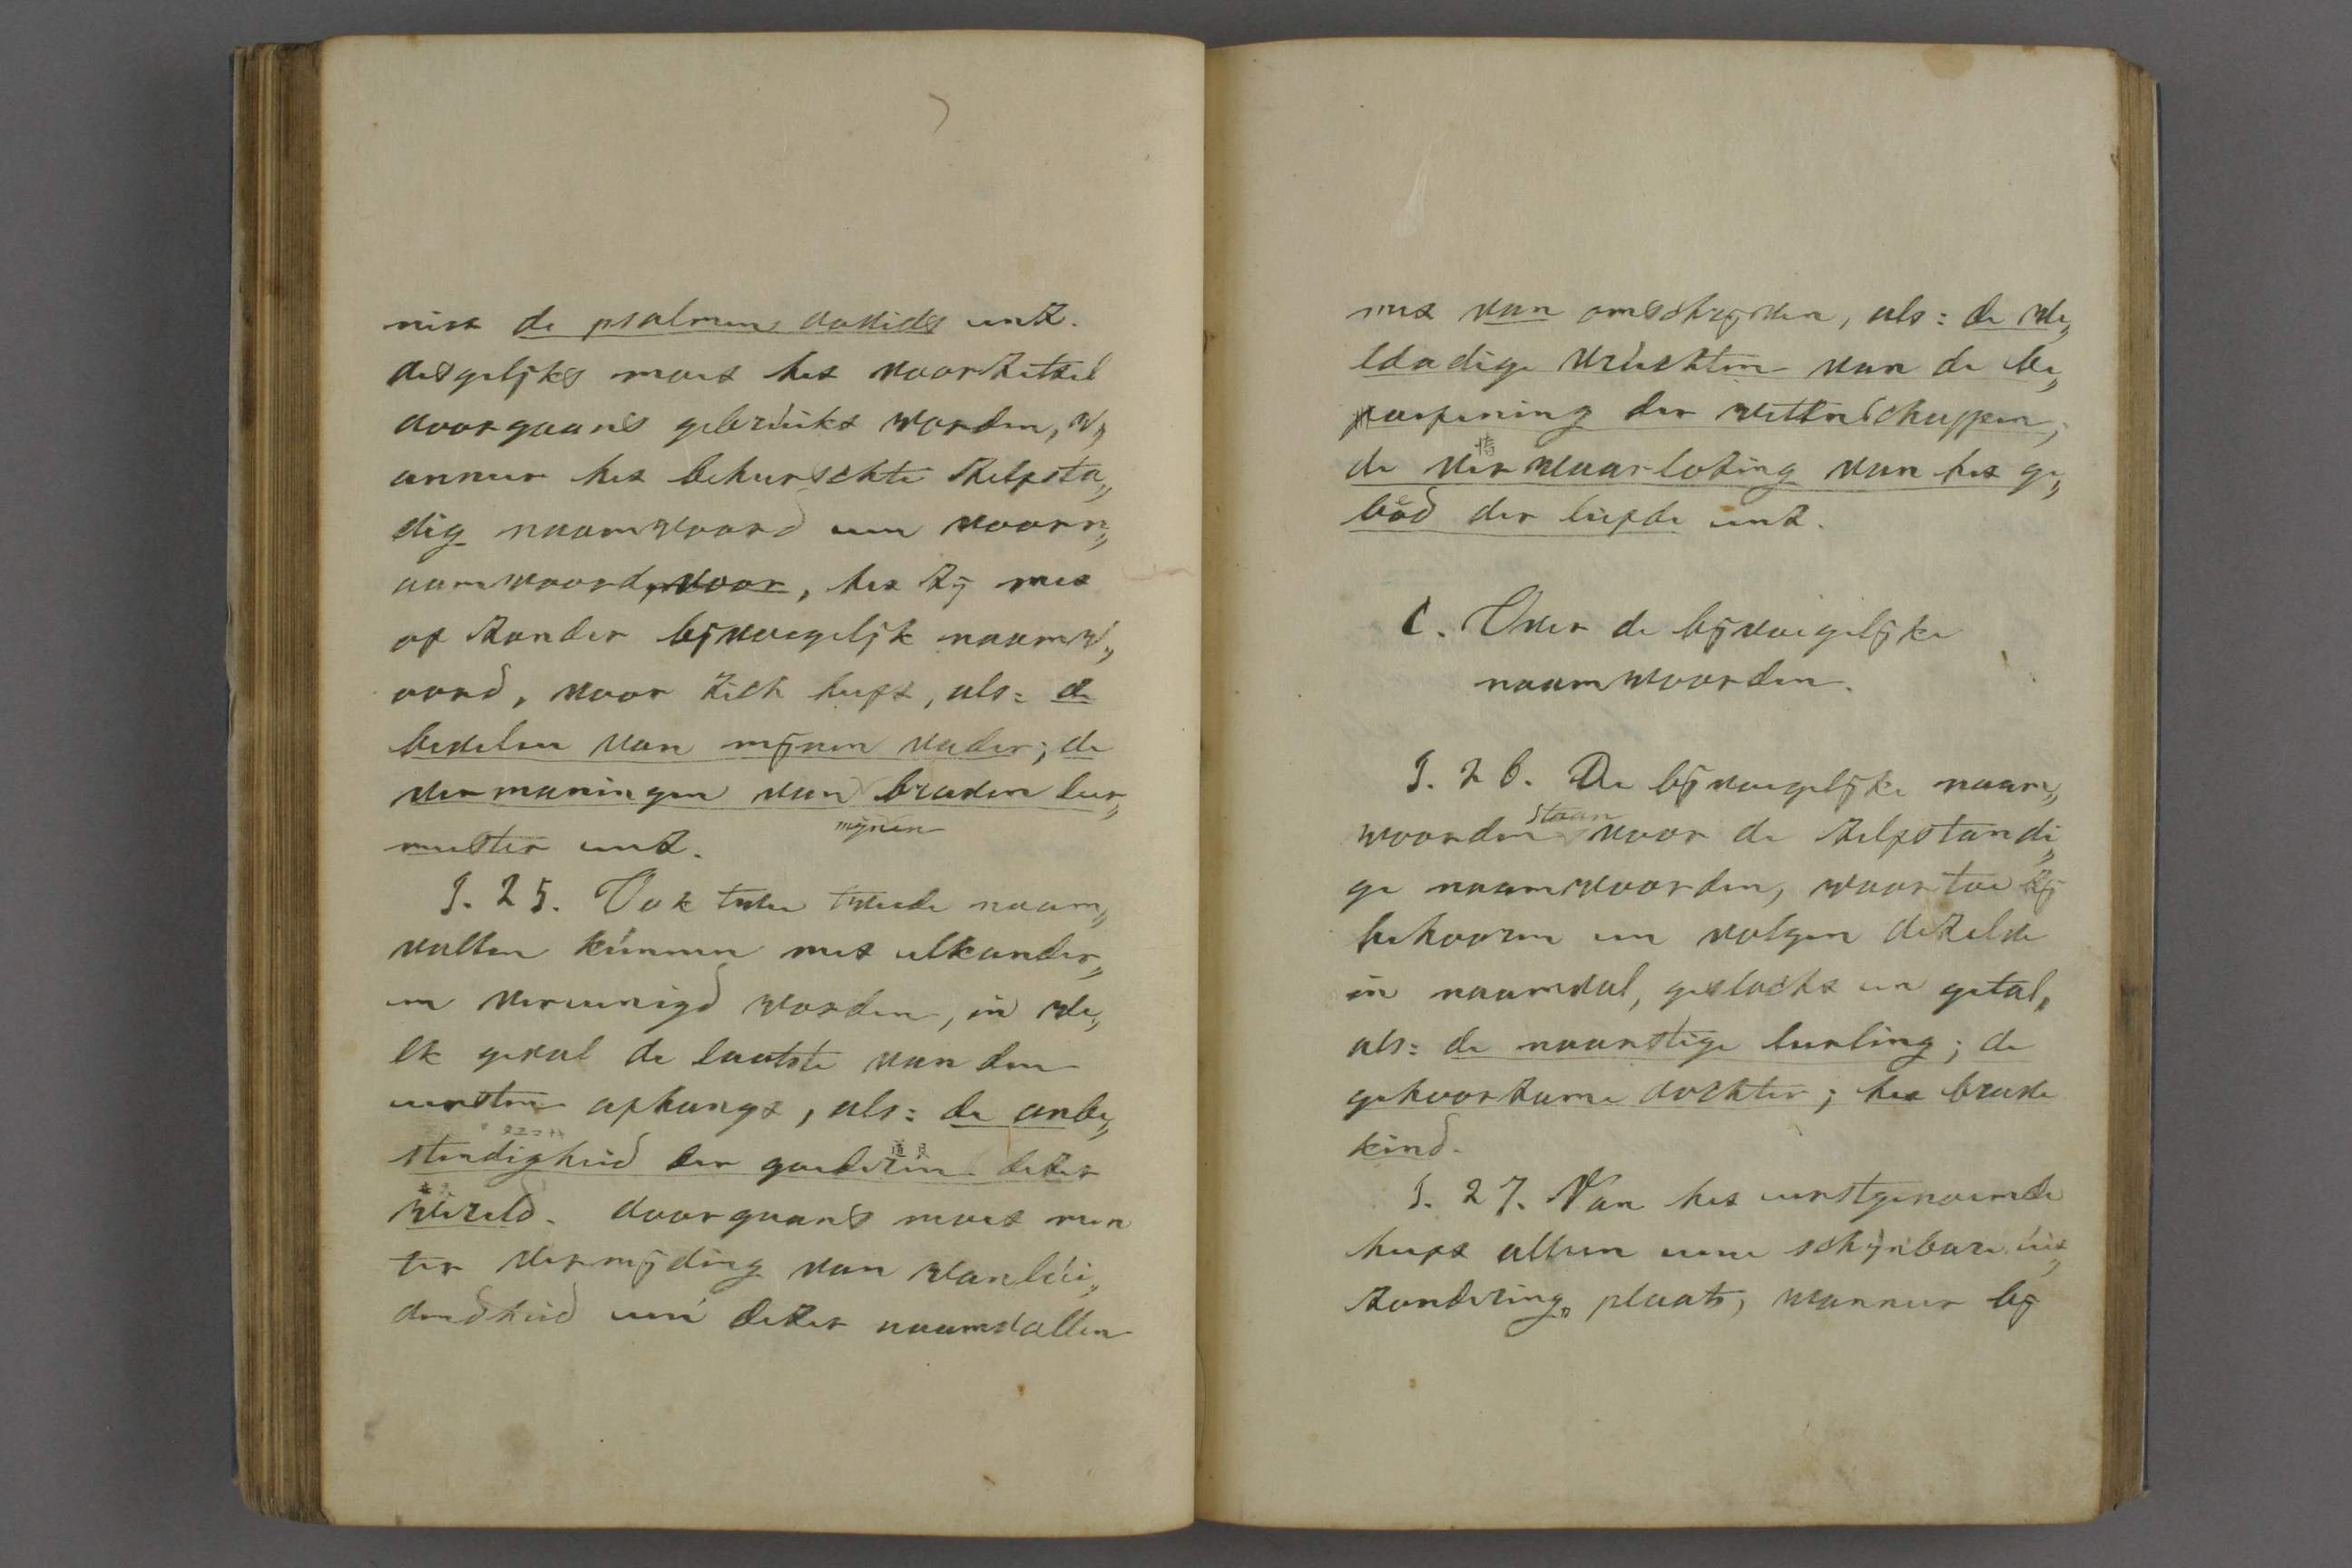 niet de psalmen davids enz.
desgelijks moet het voorzetsel
doorgaans gebruikt worden, w„
anneer het beheerschte zelfsta„
dig naamwoord een voorn„
aamwoord, voor, het zij met
of zonder bijvoegelijk naamw„
oord, voor zich heeft, als: de
bevelen van mijnen vader; de
vermaningen van braven leer„
mijnen
meester enz.
§. 25. Ook twee tweede naam„
vallen kunnen met elkander„
en vereenigd worden, in we„
lk geval de laatste van den
eersten afhangt, als: de onbe„
stendigheid der goederen dezer
wereld. doorgaans moet men
ter vermijding van wanlui„
dendheid een dezer naamvallen
met van omschrijven, als: de we„
ldadige vruchten van de be„
oefening der wettenschappen;
de verwaarlozing van het ge„
bod der liefde enz.
C. Over de bijvoegelijke
naamwoorden.
§. 26. De bijvoegelijke naam„
staan
woorden voor de zelfstandi„
ge naamwoorden, waartoe zij
behooren en volgen dezelve
in naamval, geslacht en getal,
als: de naarstige leerling; de
gehoorzame dochter; het brave
kind.
§. 27. Van het eerstgenoemde
heeft alleen eene schijnbare uit„
zondering„ plaats, wanneer bij